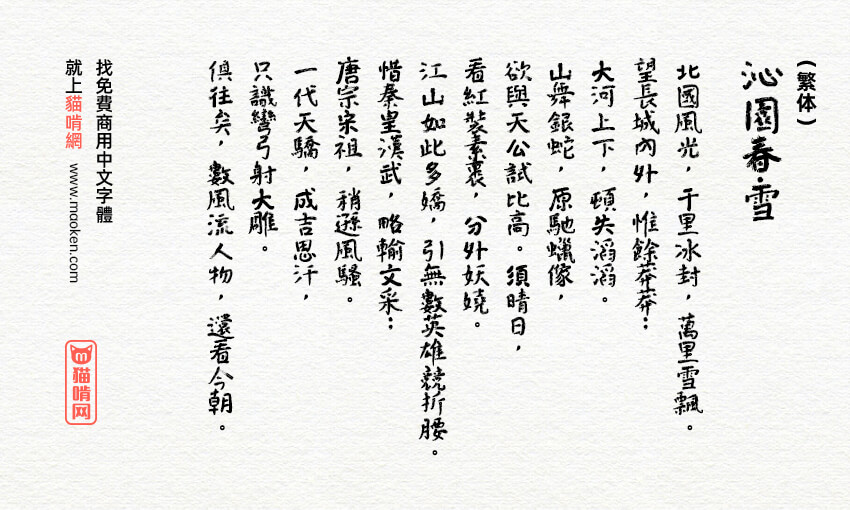 (繁体)
沁園春·雪
北國風光，千里冰封，萬里雪飄。
望長城內外，惟餘莽莽：
大河上下，頓失滔滔。
山舞銀蛇，原馳蠟像，
欲與天公試比高。須晴日，
看紅裝素裹，分外妖嬈。
江山如此多嬌，引無數英雄競折腰。
惜秦皇漢武，略輸文采：
唐宗宋祖，稍遜風騷。
一代天驕，成吉思汗，
只識彎弓射大雕。
俱往矣，數風流人物，還看今朝。
找免費商用中文字體
就上貓啃網 www.maoken.com
貓啃网